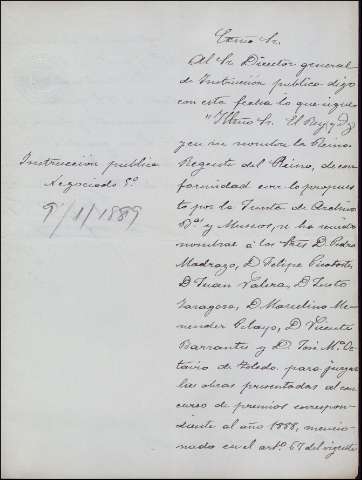 Excmo Sr.
Al Sr Director general
de Instrucción publica digo
con esta fecha lo que sigue
"Illmo Sr. El Rey q D g
y en su nombre la Reina
Regente del Reino, de con-
formidad con lo propuesto
por la Junta de Archivos
B.as y Museos, se ha servido
nombrar á los Sres D. Pedro
Madrazo, D. Felipe Picatoste,
D Juan Valera, D. Justo
Zaragoza, D. Marcelino Me-
nendez Pelayo, D. Vicente
Barrantes y D. José M.a Oc-
tavio de Toledo para juzgar
las obras presentadas al con-
curso de premios correspon-
diente al año 1888, mencio-
nado en el art.o 67 del vigente
Instrucción publica
Negociado 5.o
9/1/1889